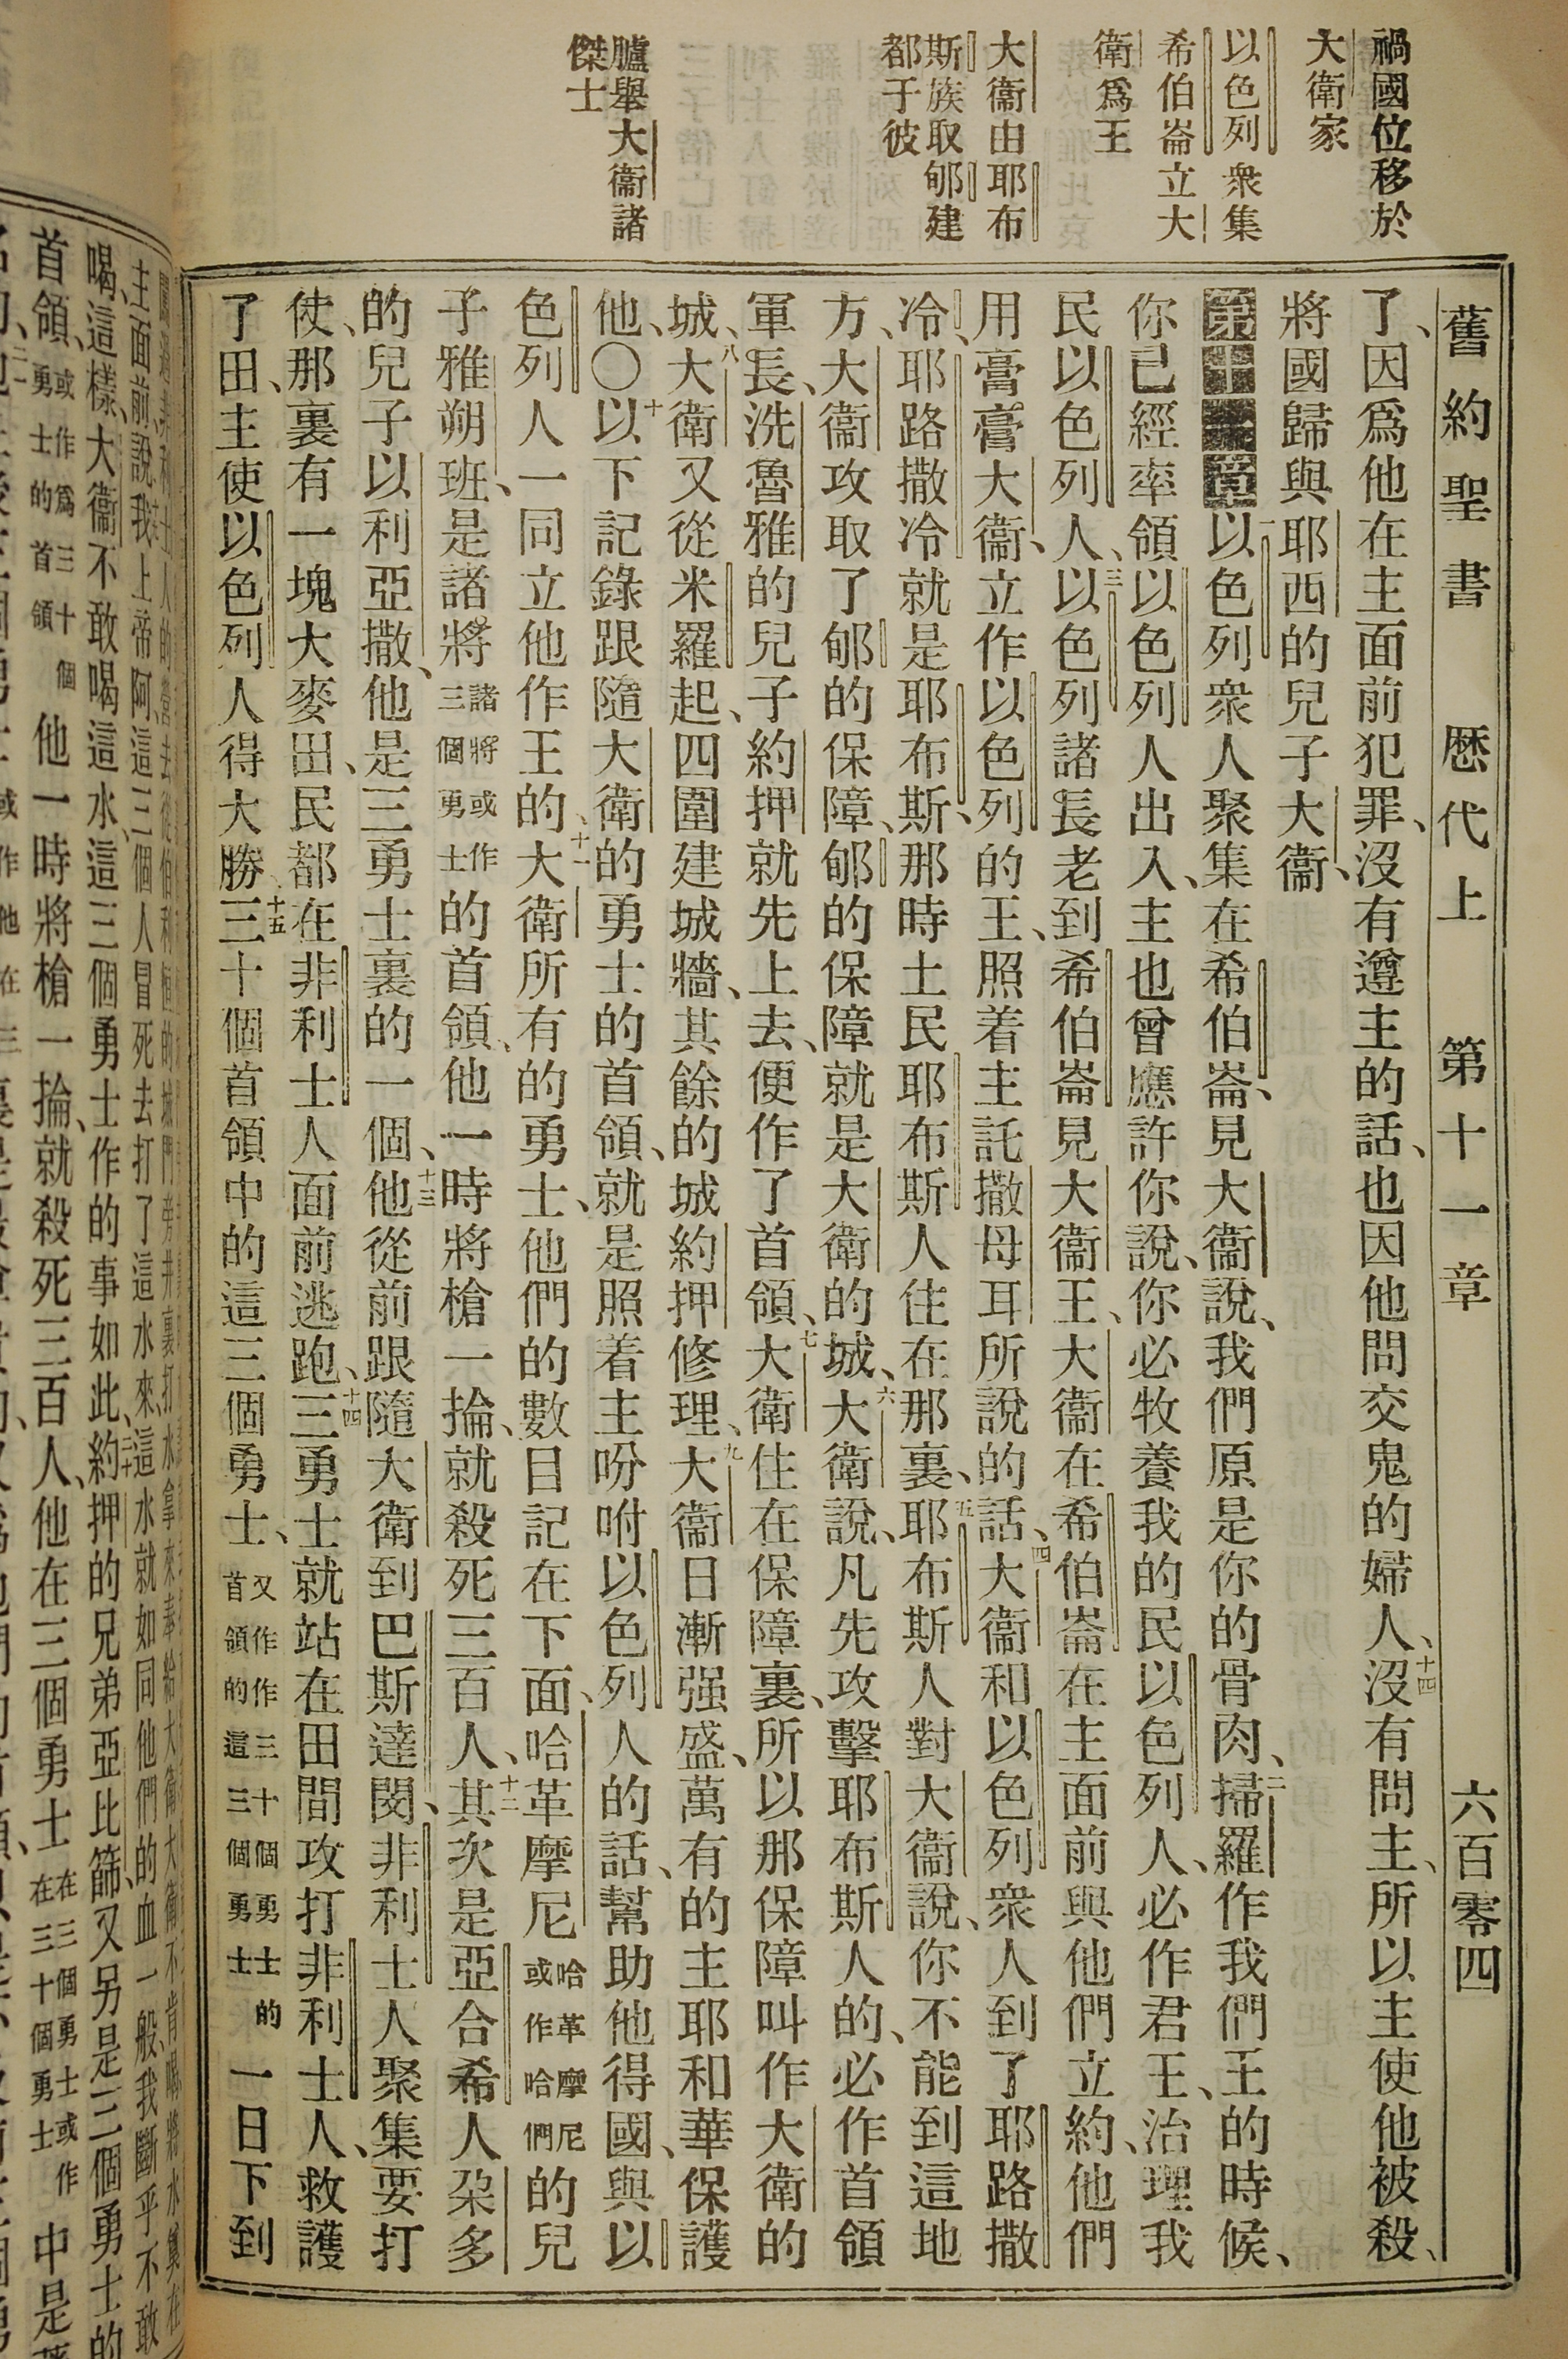 禍國位移於
大衛家
以色列衆集
希伯崙立大
衛爲王
大衞由耶布
斯族取郇建
都于彼
臚舉大衞諸
傑士
舊約聖書 歷代上 第十一章 六百零四
了、因爲他在主面前犯罪、沒有遵主的話、也因他問交鬼的婦人、十四沒有問主、所以主使他被殺、
將國歸與耶西的兒子大衞、
第十一章一以色列衆人聚集在希伯崙、見大衞說、我們原是你的骨肉、二掃羅作我們王的時候、
你已經率領以色列人出入、主也曾應許你說、你必牧養我的民以色列人、必作君王、治理我
民以色列人、三以色列諸長老到希伯崙見大衞王、大衞在希伯崙在主面前與他們立約、他們
用膏膏大衞、立作以色列的王、照着主託撒母耳所說的話、四大衞和以色列衆人到了耶路撒
冷、耶路撒冷就是耶布斯、那時土民耶布斯人住在那裏、五耶布斯人對大衞說、你不能到這地
方、大衞攻取了郇的保障、郇的保障就是大衛的城、六大衛說、凡先攻擊耶布斯人的、必作首領
軍長、洗魯雅的兒子約押就先上去、便作了首領、七大衛住在保障裏、所以那保障叫作大衛的
城、八大衛又從米羅起、四圍建城、其餘的城約押修理、九大衞日漸强盛、萬有的主耶和華保護
他、〇十以下記錄跟隨大衛的勇士的首領、就是照着主吩咐以色列人的話、幫助他得國、與以
色列人一同立他作王的、十一大衛所有的勇士、他們的數目記在下面、哈革摩尼哈革摩尼或作哈們的兒
子雅朔班、是諸將諸將或作三個勇士的首領、他一時將槍一掄、就殺死三百人、十二其次是亞合希人朶多
的兒子以利亞撒、他是三勇士裏的一個、十三他從前跟隨大衛到巴斯達閔、非利士人聚集要打
仗、那裏有一塊大麥田、民都在非利士人面前逃跑、十四三勇士就站在田間攻打非利士人、救護
了田、主使以色列人得大勝、十五三十個首領中的這三個勇士、又作作三十個勇士的首領的這三個勇士一日下到
主面前、說、我上帝阿、這三個人冒死去打了這水來、這水就如同他們的血一般、我斷乎不敢
喝、這樣、大衞不敢喝這水、這三個勇士作的事如此、二十約押的兄弟亞比篩、又另是三個勇士的
首領、或作爲三十個勇士的首領他一時將槍一掄、就殺死三百人、他在三個勇士在三個勇士或作在三十個勇士中是